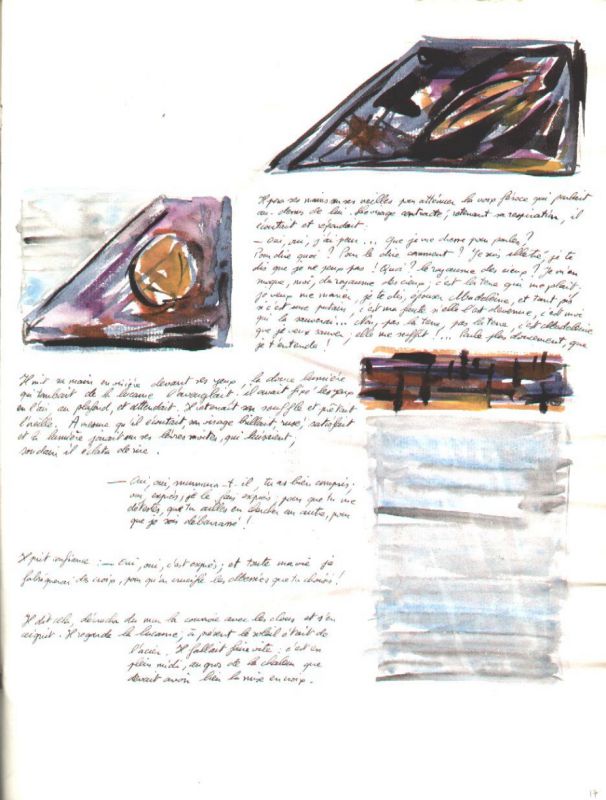 Il posa ses mains sur ses oreilles pour atténuer la voix féroce qui parlait
au-dessus de lui. Le visage contracté, retenant sa respiration, il
écoutait et répondait.
— Oui, oui, j'ai peur... que je me dresse pour parler?
Pour dire quoi? Pour le dire comment? Je suis illettré, je te
dis que je ne peux pas! Quoi? le royaume des cieux? Je m'en
moque, moi, du royaume des cieux; c'est la terre qui me plaît;
je veux me marier, je te dis, épouser Madeleine, et tant pis
si c'est une putain, c'est ma faute si elle l'est devenue, c'est moi
qui la sauverai... Non, pas la terre, pas la terre, c'est Madeleine
que je veux sauver; elle me suffit... Parle plus doucement, que
je t'entende!
Il mit sa main en visière devant ses yeux; la douce lumière
qui tombait de la lucarne l'aveuglait; il avait fixé les yeux
en l'air, au plafond, et attendait. Il retenait son souffle et prêtait
l'oreille. A mesure qu'il écoutait son visage brillait, rusé, satisfait
et la lumière jouait sur ses lèvres moites, qui luisaient,
soudain il éclata de rire.
— Oui, oui, murmura-t-il, tu as bien compris;
oui, exprès; je le fais exprès, pour que tu me
détestes, que tu ailles en chercher un autre, pour
que je sois débarrassé!
Il prit confiance: — Oui, oui, c'est exprès; et toute ma vie je
fabriquerai des croix, pour qu'on crucifie les Messies que tu choisis!
Il dit cela, décrocha du mur la courroie avec les clous et s'en
ceignit. Il regarda la lucarne; à présent le soleil était de
l'acier. Il fallait faire vite: c'est en
plein midi, au gros de la chaleur que
devait avoir lieu la mise en croix.
17